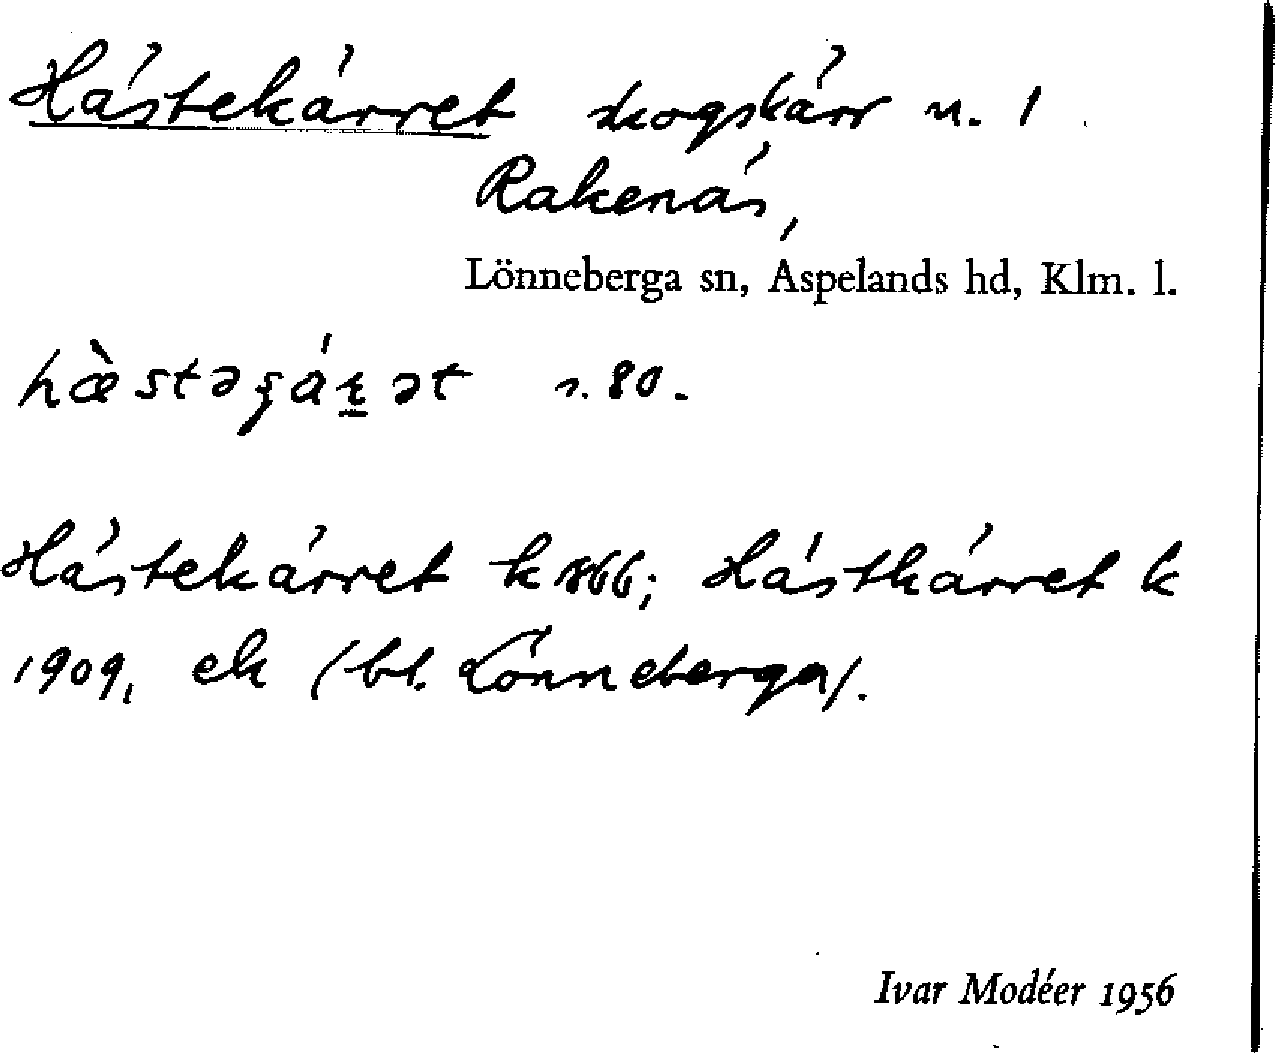 Hästekärret skogskärr n. 1
Rakenäs,
Lönneberga sn, Aspelands hd, Klm. l.
80.
Hästekärret k 1866; Hästkärret k
1909, ek (bl. Lönneberga).
Ivar Modéer 1956